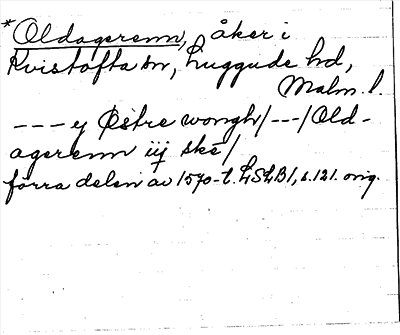 *Oldagerenn, åker i
Kvistofta sn, Luggude hd,
Malm. l.
--- ej Østre wongh/---/Old-
agerenn iij ske/
förra delen av 1570-t. LSLB1, s. 121. orig.